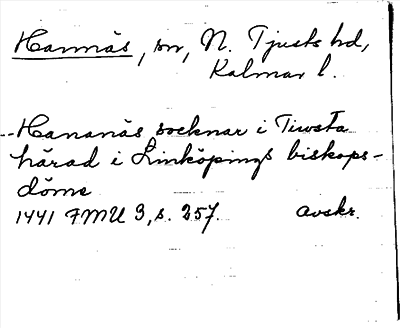 Hannäs, sn, N. Tjusts hd,
Kalmar l.
Hananäs socknar i Tiwsta
härad i Linköpings biskops-
döme
1441 FMU 3, s. 257. avskr.